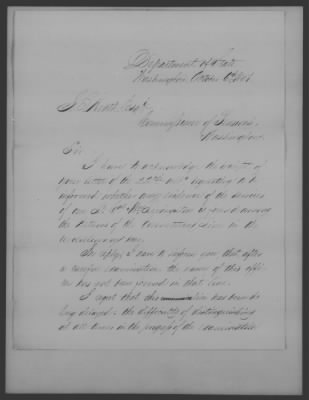 Department of State
Washington, October 6th
J. E. Heath Esqr.
Commissioner of Pensions
Washington.
Sir,
I have to acknowledge the receipt of
your letter of the 22nd ulto. requesting to be
informed whether any evidence of the services
of one is found among
the Returns of the Connecticut line in the
revolutionary war.
In reply, I have to inform you that after
a careful examination the name of this offi-
cer has not been found in that line.
I regret that this has been so
long delayed: the difficulty of distinguishing
at all times in the of the examination